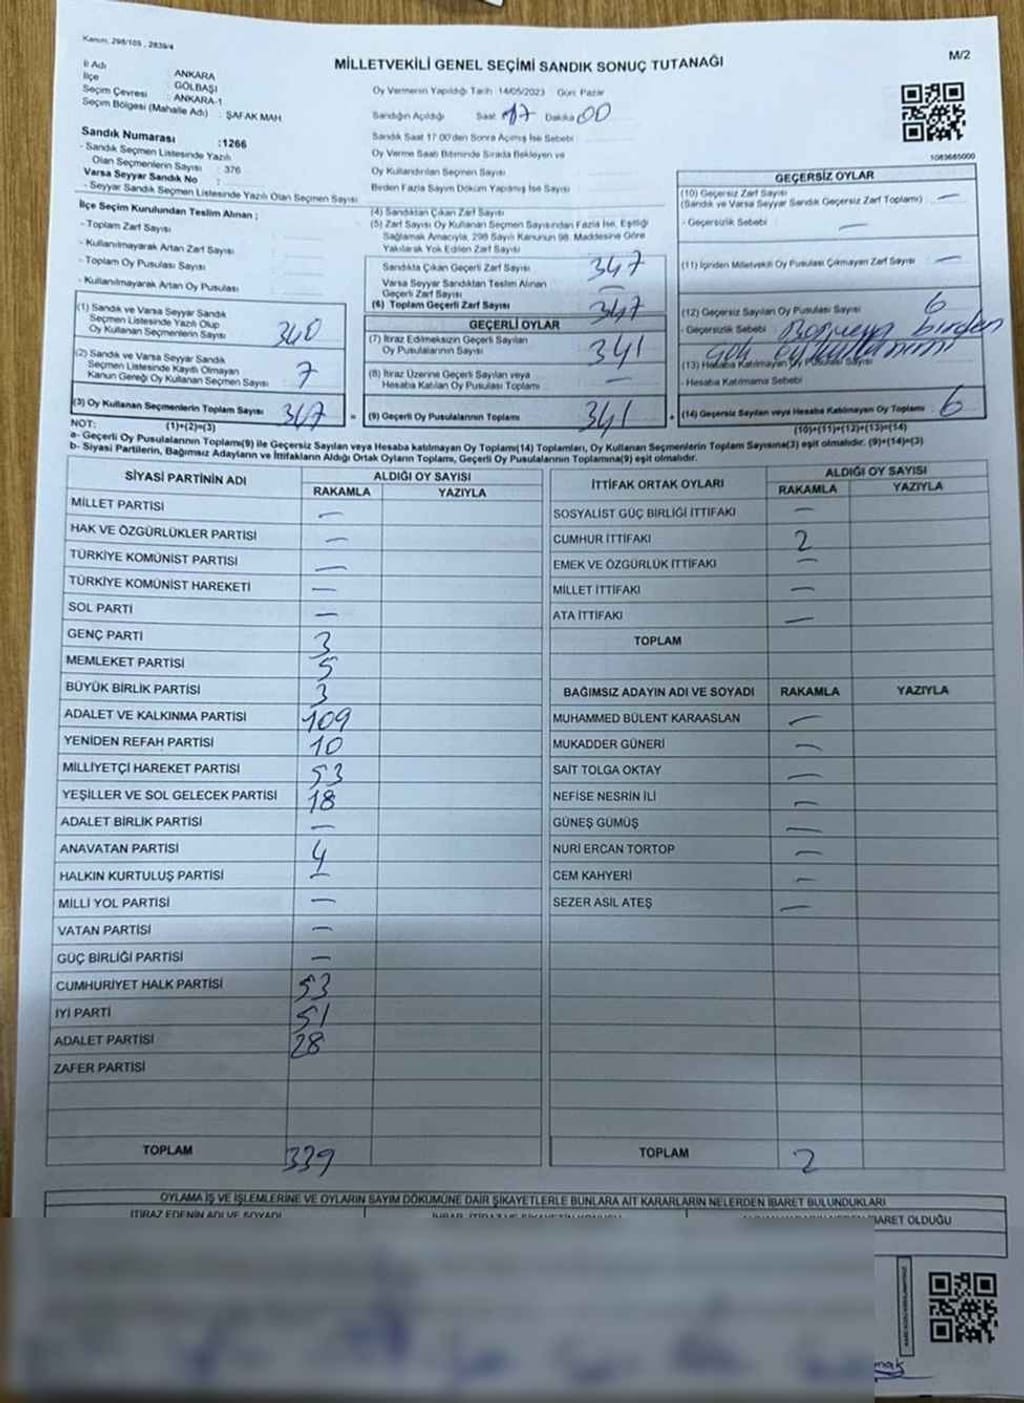 Kanun: 298/105 , 2839/4
MİLLETVEKİLİ GENEL SEÇİMİ SANDIK SONUÇ TUTANAĞI
M/2
İl Adı : ANKARA
İlçe : GÖLBAŞI
Seçim Çevresi : ANKARA-1
Seçim Bölgesi (Mahalle Adı) : ŞAFAK MAH
Sandık Numarası :1266
- Sandık Seçmen Listesinde Yazılı
Olan Seçmenlerin Sayısı : 376
Varsa Seyyar Sandık No :
- Seyyar Sandık Seçmen Listesinde Yazılı Olan Seçmen Sayısı
Oy Vermenin Yapıldığı Tarih: 14/05/2023 Gün: Pazar
Sandığın Açıldığı Saat 17 Dakika 00
Sandık Saat 17.00'den Sonra Açılmış İse Sebebi
Oy Verme Saati Bitiminde Sırada Bekleyen ve
Oy Kullandırılan Seçmen Sayısı
Birden Fazla Sayım Döküm Yapılmış İse Sayısı
1083685000
İlçe Seçim Kurulundan Teslim Alınan ;
- Toplam Zarf Sayısı
- Kullanılmayarak Artan Zarf Sayısı
- Toplam Oy Pusulası Sayısı
- Kullanılmayarak Artan Oy Pusulası
(1) Sandık ve Varsa Seyyar Sandık
Seçmen Listesinde Yazılı Olup
Oy Kullanan Seçmenlerin Sayısı 340
(2) Sandık ve Varsa Seyyar Sandık
Seçmen Listesinde Kayıtlı Olmayan
Kanun Gereği Oy Kullanan Seçmen Sayısı 7
(3) Oy Kullanan Seçmenlerin Toplam Sayısı 347
(1)+(2)=(3)
(4) Sandıktan Çıkan Zarf Sayısı
(5) Zarf Sayısı Oy Kullanan Seçmen Sayısından Fazla İse, Eşitliği
Sağlamak Amacıyla, 298 Sayılı Kanunun 98. Maddesine Göre
Yakılarak Yok Edilen Zarf Sayısı
Sandıkta Çıkan Geçerli Zarf Sayısı 347
Varsa Seyyar Sandıktan Teslim Alınan
Geçerli Zarf Sayısı —
(6) Toplam Geçerli Zarf Sayısı 347
GEÇERLİ OYLAR
(7) İtiraz Edilmeksizin Geçerli Sayılan
Oy Pusulalarının Sayısı 341
(8) İtiraz Üzerine Geçerli Sayılan veya
Hesaba Katılan Oy Pusulası Toplamı —
= (9) Geçerli Oy Pusulalarının Toplamı 341
GEÇERSİZ OYLAR
(10) Geçersiz Zarf Sayısı
(Sandık ve Varsa Seyyar Sandık Geçersiz Zarf Toplamı) —
- Geçersizlik Sebebi —
(11) İçinden Milletvekili Oy Pusulası Çıkmayan Zarf Sayısı —
(12) Geçersiz Sayılan Oy Pusulası Sayısı 6
- Geçersizlik Sebebi Boş veya birden
çok oy kullanımı
(13) Hesaba Katılmayan Oy Pusulası Sayısı
- Hesaba Katılmama Sebebi
+ (14) Geçersiz Sayılan veya Hesaba Katılmayan Oy Toplamı 6
(10)+(11)+(12)+(13)=(14)
NOT:
a- Geçerli Oy Pusulalarının Toplamı(9) ile Geçersiz Sayılan veya Hesaba katılmayan Oy Toplamı(14) Toplamları, Oy Kullanan Seçmenlerin Toplam Sayısına(3) eşit olmalıdır. (9)+(14)=(3)
b- Siyasi Partilerin, Bağımsız Adayların ve İttifakların Aldığı Ortak Oyların Toplamı, Geçerli Oy Pusulalarının Toplamına(9) eşit olmalıdır.
SİYASİ PARTİNİN ADI
ALDIĞI OY SAYISI
RAKAMLA YAZIYLA
MİLLET PARTİSİ —
HAK VE ÖZGÜRLÜKLER PARTİSİ —
TÜRKİYE KOMÜNİST PARTİSİ —
TÜRKİYE KOMÜNİST HAREKETİ —
SOL PARTİ —
GENÇ PARTİ 3
MEMLEKET PARTİSİ 5
BÜYÜK BİRLİK PARTİSİ 3
ADALET VE KALKINMA PARTİSİ 109
YENİDEN REFAH PARTİSİ 10
MİLLİYETÇİ HAREKET PARTİSİ 53
YEŞİLLER VE SOL GELECEK PARTİSİ 18
ADALET BİRLİK PARTİSİ —
ANAVATAN PARTİSİ 4
HALKIN KURTULUŞ PARTİSİ —
MİLLİ YOL PARTİSİ —
VATAN PARTİSİ —
GÜÇ BİRLİĞİ PARTİSİ —
CUMHURİYET HALK PARTİSİ 53
İYİ PARTİ 51
ADALET PARTİSİ 28
ZAFER PARTİSİ
TOPLAM 339
İTTİFAK ORTAK OYLARI
ALDIĞI OY SAYISI
RAKAMLA YAZIYLA
SOSYALİST GÜÇ BİRLİĞİ İTTİFAKI —
CUMHUR İTTİFAKI 2
EMEK VE ÖZGÜRLÜK İTTİFAKI —
MİLLET İTTİFAKI —
ATA İTTİFAKI —
TOPLAM
BAĞIMSIZ ADAYIN ADI VE SOYADI RAKAMLA YAZIYLA
MUHAMMED BÜLENT KARAASLAN —
MUKADDER GÜNERİ —
SAİT TOLGA OKTAY —
NEFİSE NESRİN İLİ —
GÜNEŞ GÜMÜŞ —
NURİ ERCAN TORTOP —
CEM KAHYERİ —
SEZER ASİL ATEŞ —
TOPLAM 2
OYLAMA İŞ VE İŞLEMLERİNE VE OYLARIN SAYIM DÖKÜMÜNE DAİR ŞİKAYETLERLE BUNLARA AİT KARARLARIN NELERDEN İBARET BULUNDUKLARI
İTİRAZ EDENİN ADI VE SOYADI
BARET OLDUĞU